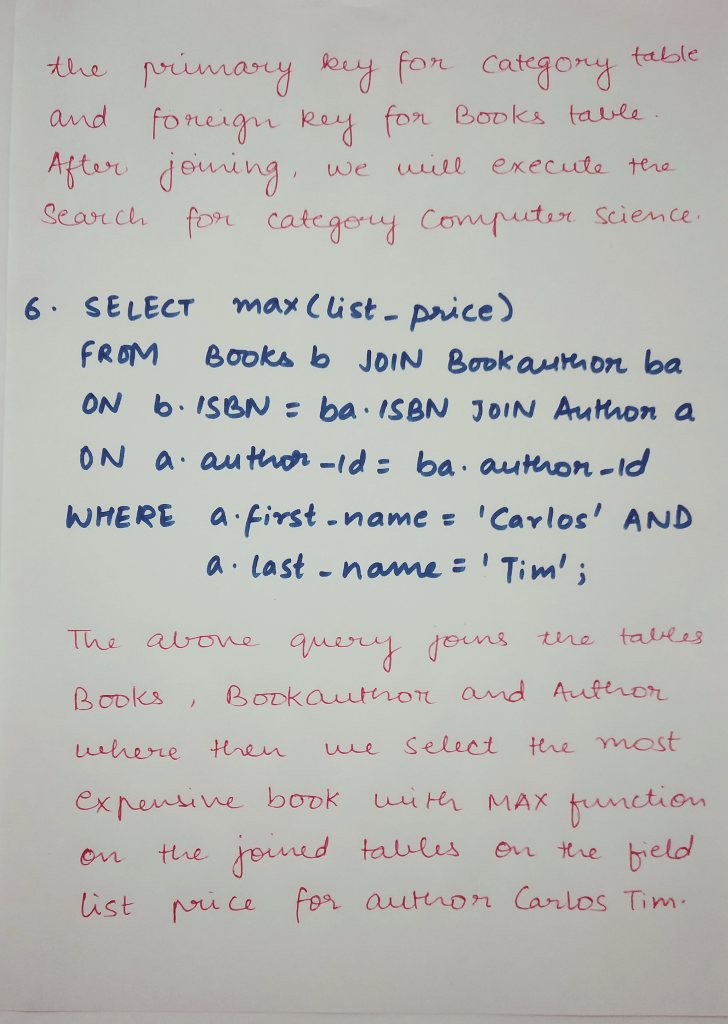 the primary key for category table
and foreign key for Books table.
After joining, we will execute the
Search for category Computer Science.
6. SELECT max(list_price)
FROM Books b JOIN Bookauthor ba
ON b.ISBN = ba.ISBN JOIN Author a
ON a.author_id = ba.author_id
WHERE a.first_name = 'Carlos' AND
a.last_name = 'Tim';
The above query joins the tables
Books, Bookauthor and Author
where then we select the most
expensive book with MAX function
on the joined tables on the field
list price for author Carlos Tim.